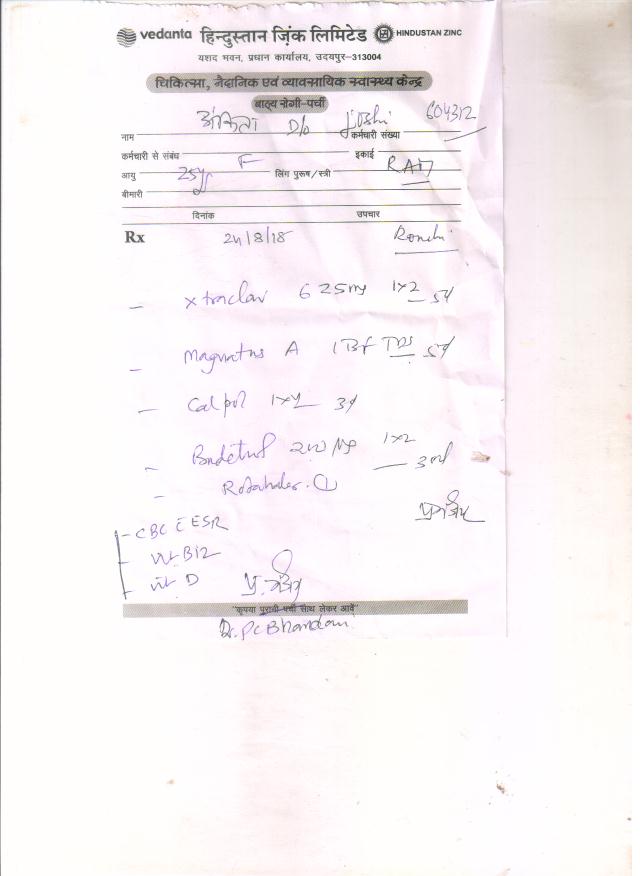 vedanta हिन्दुस्तान ज़िंक लिमिटेड HINDUSTAN ZINC
यशद भवन, प्रधान कार्यालय, उदयपुर–313004
चिकित्सा, नैदानिक एवं व्यावसायिक स्वास्थ्य केन्द्र
बाह्य रोगी-पर्ची
नाम अंकिता D/o Joshi कर्मचारी संख्या 604312
कर्मचारी से संबंध F इकाई
आयु 25yr लिंग पुरूष/स्त्री
बीमारी
दिनांक उपचार
Rx 24/8/18 Ronchi
– xtraclav 625mg 1x2 5d
– A 1 TDS 5d
– Calpol 3d
– 1x2
– Rotahaler. ①
– CBC ESR
– vit B12
– vit D
"कृपया पुरानी पर्ची साथ लेकर आवें"
Dr. PC Bhandari